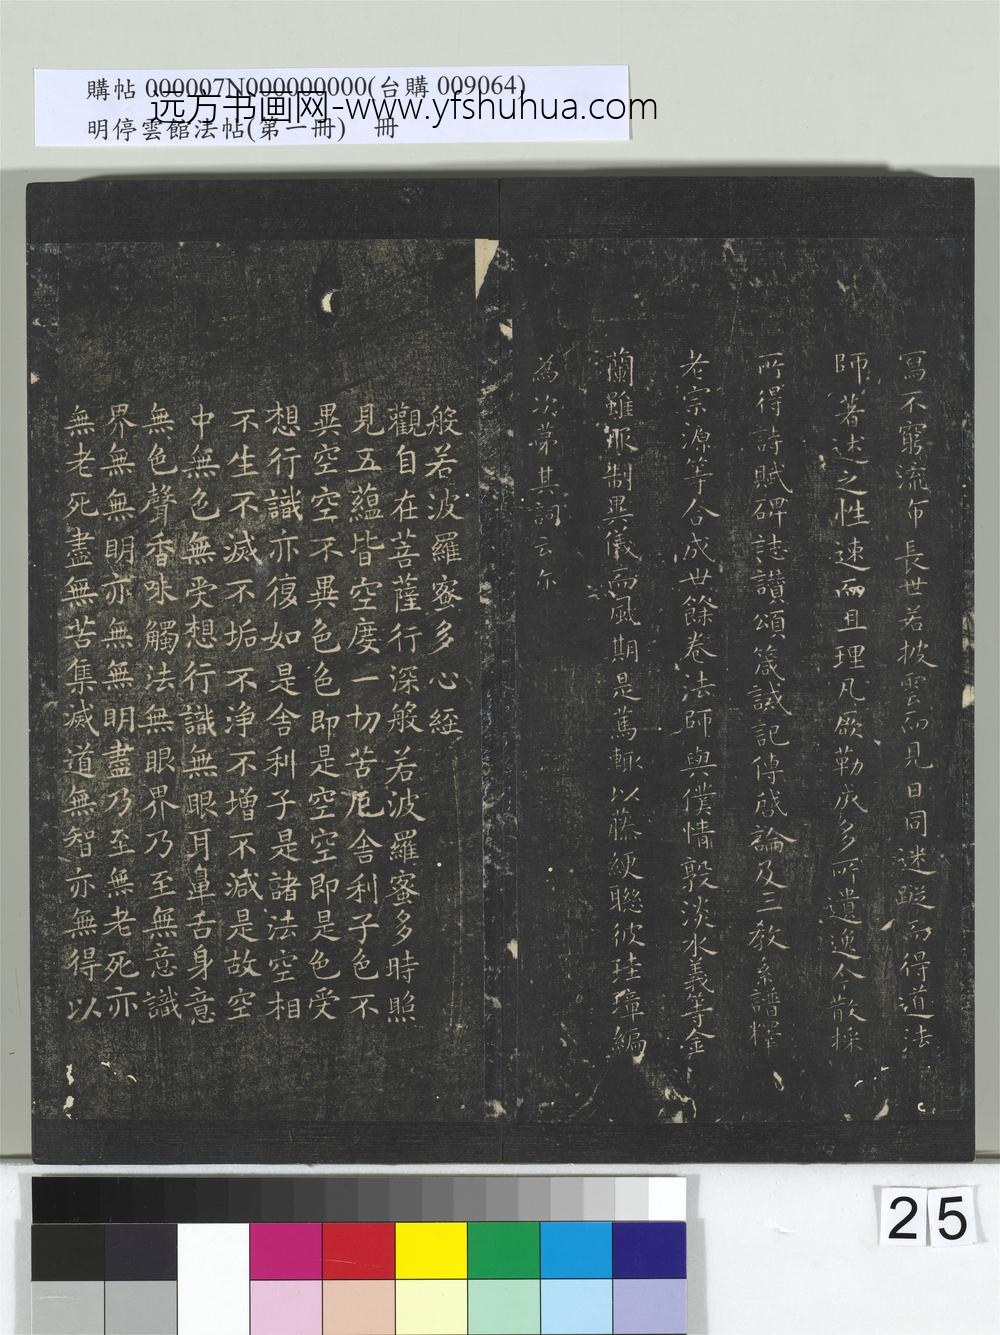 購帖 000007N000000000(台購 009064)
远方书画网-www.yfshuhua.com
明停雲館法帖(第一冊) 冊
寫不窮流布長世若披雲而見日同迷蹤而得道法
師著述之性速而且理凡厥勒成多所遺逸今散採
所得詩賦碑誌讚頌箴誡記傳啟論及三教系譜釋
老宗源等合成世餘卷法師與僕情敦淡水義等金
蘭雖服制異儀而風期是篤輒以藤綆聯彼珪璋編
為次第其詞云尔
般若波羅蜜多心経
觀自在菩薩行深般若波羅蜜多時照
見五蘊皆空度一切苦厄舍利子色不
異空空不異色色即是空空即是色受
想行識亦復如是舍利子是諸法空相
不生不滅不垢不淨不增不減是故空
中無色無受想行識無眼耳鼻舌身意
無色聲香味觸法無眼界乃至無意識
界無無明亦無無明盡乃至無老死亦
無老死盡無苦集滅道無智亦無得以
25